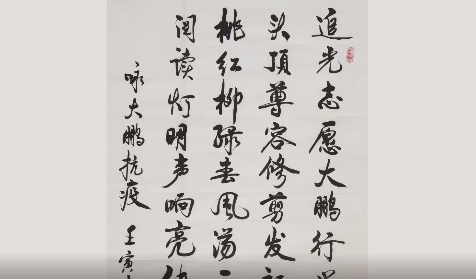 追光志愿大鹏行
头顶尊容修剪发
桃红柳绿春风荡
阅读灯明声响亮
咏大鹏抗疫
壬寅